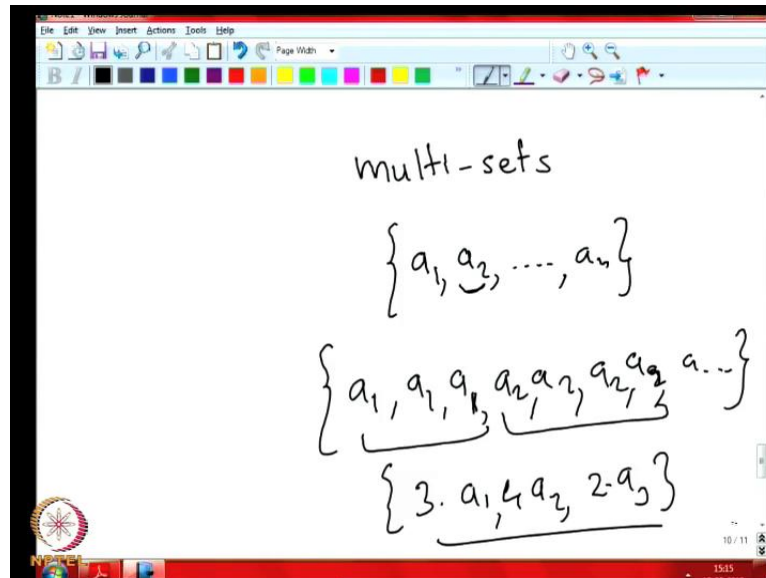 File Edit View Insert Actions Tools Help
Page Width
B I
multi-sets
{ a₁, a₂, ...., aₙ }
{ a₁, a₁, a₁, a₂, a₂, a₂, a₂, a... }
{ 3. a₁, 4 a₂, 2. a₃ }
10 / 11
NPTEL
15:15